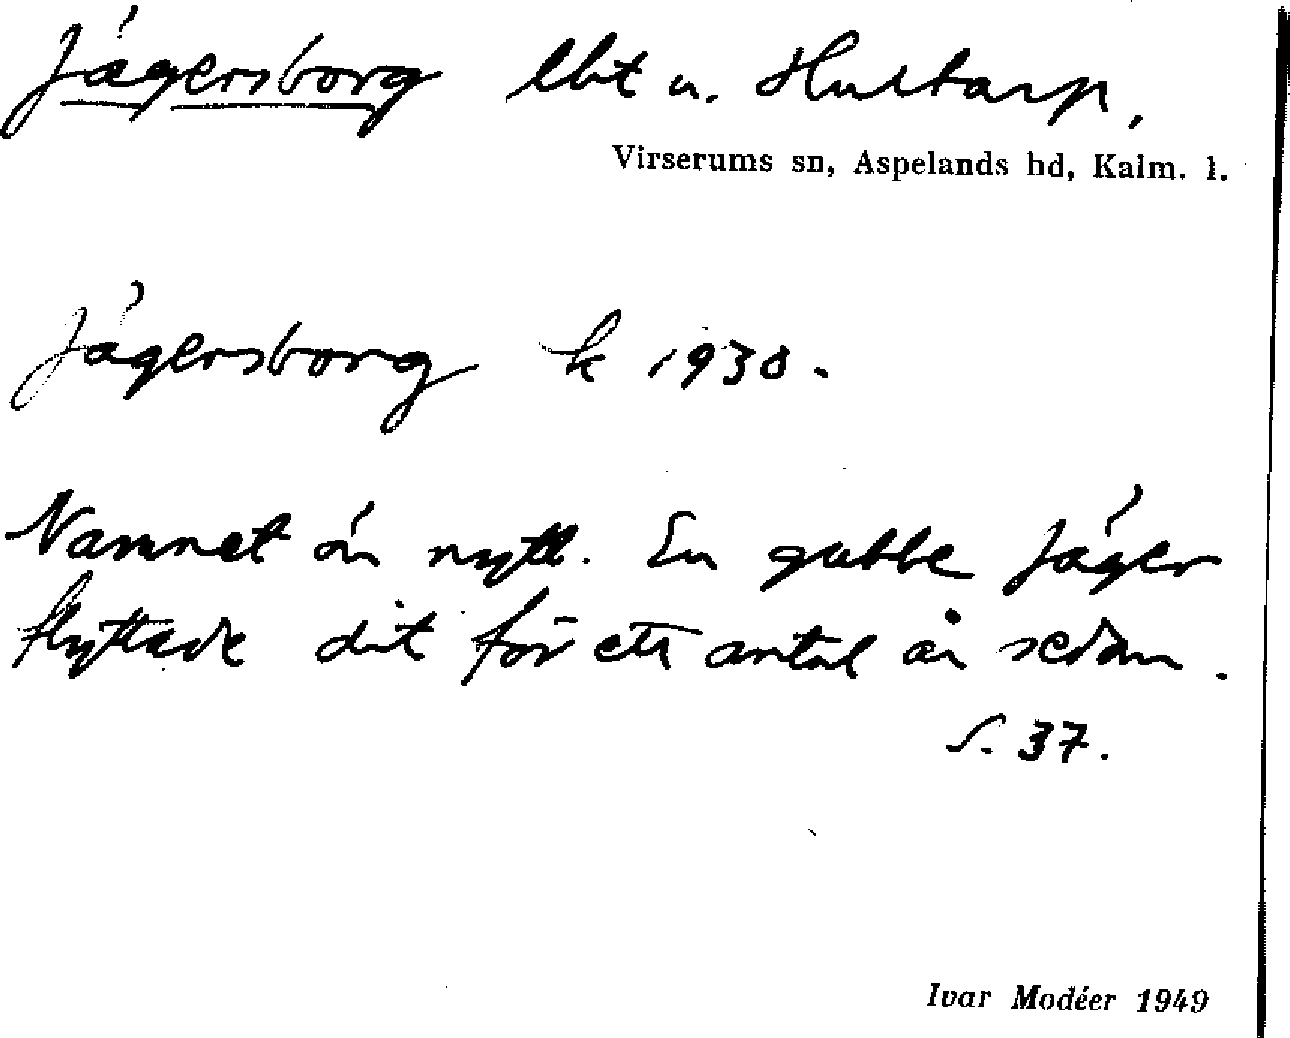 Jägersborg lht u. Hultarp,
Virserums sn, Aspelands hd, Kalm. l.
Jägersborg k 1930.
Namnet är nytt. En gubbe Jäger
flyttade dit för ett antal år sedan.
S. 37.
Ivar Modéer 1949